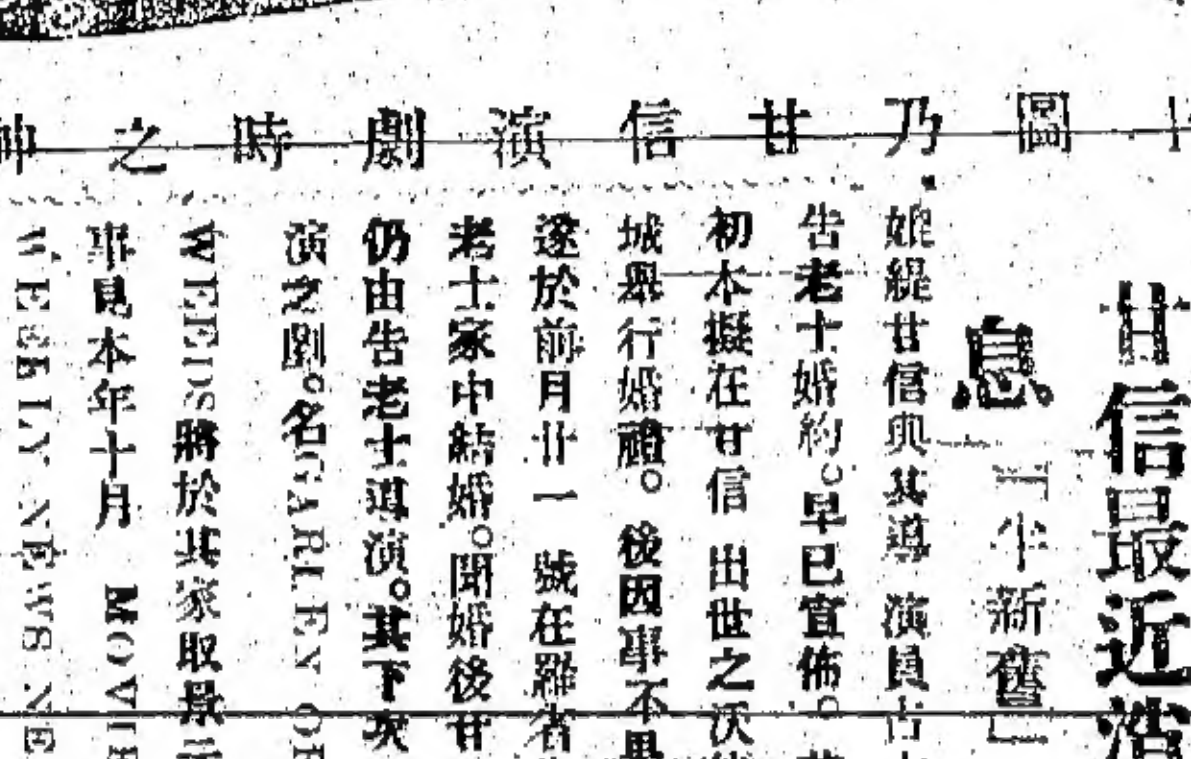 圖乃甘信演劇時之神
甘信最近消
息
「半新舊」
娓緹甘信與其導演員古
告老士婚約。早已宣佈。
初本擬在甘信出世之沃
城舉行婚禮。後因事不果
遂於前月廿一號在羅省
老士家中結婚。聞婚後甘
仍由告老士導演。其下次
演之劇。名GARLEN OF
WEEDS將於其家取景
事見本年十月 MOVIE
WEEKLY NEWS NE